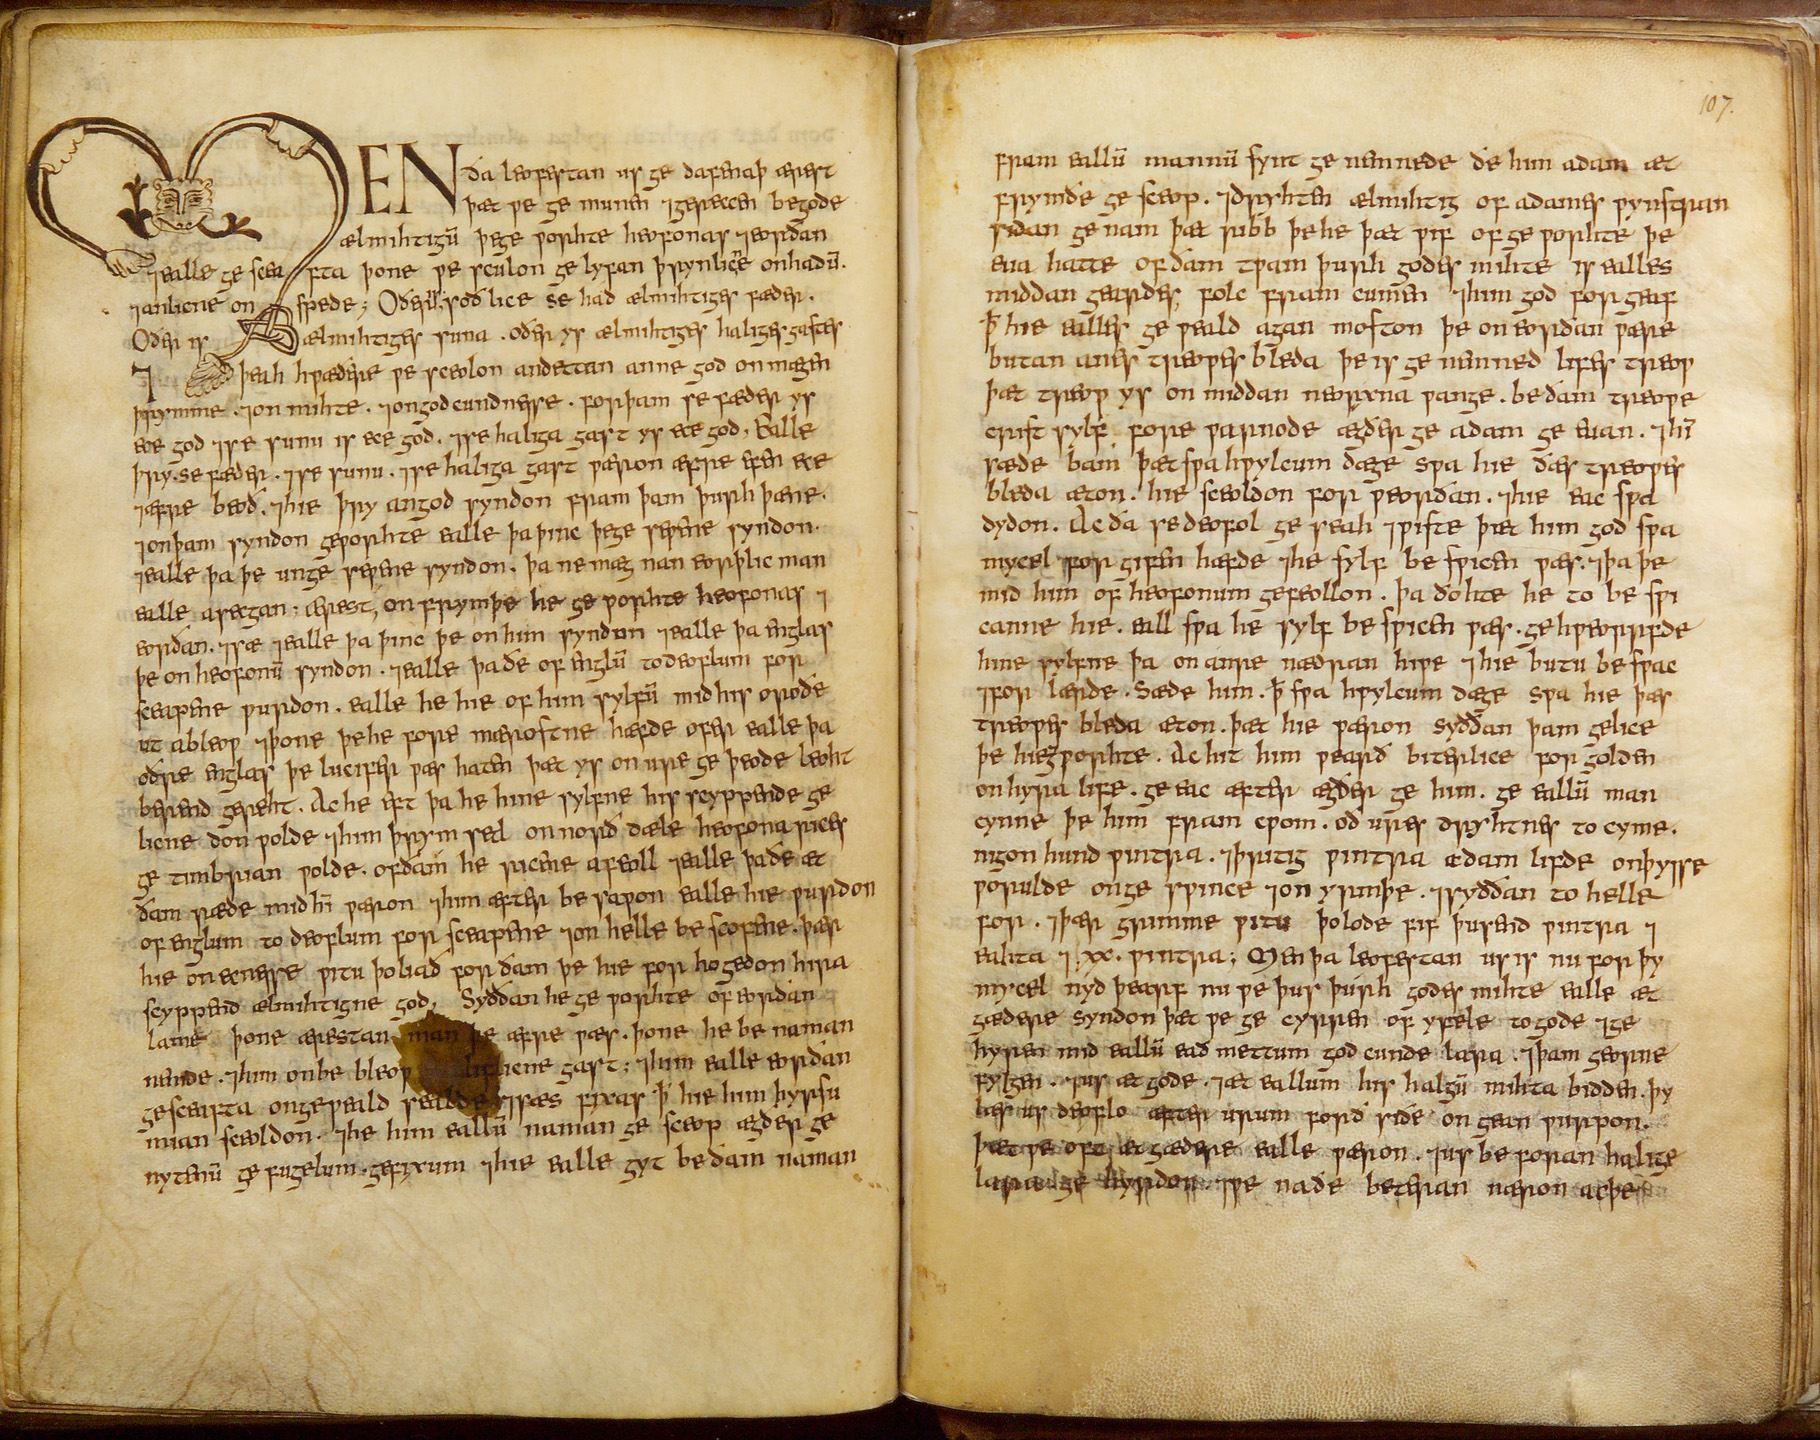 MEN ða leofestan us ge dafenaþ ærest
þæt ƿe ge munen ⁊gereccen begode
ælmihtigū þege ƿorhte heofonas ⁊eorðan
⁊ealle ge scea fta þone ƿe sculon ge lyfan þrynlicre onhadū.
⁊anlicne on spede; Oðer soð lice se had ælmihtiges fæder.
Oðer is ælmihtiges suna. oðer ys ælmihtiges haliges gastes
⁊ þeah hƿæðere ƿe sceolon andettan anne god on mægen
þrymme. ⁊on mihte. ⁊ongodcundnesse. forþam se fæder ys
ece god ⁊se sunu is ece god. ⁊se haliga gast ys ece god, Ealle
þry. se fæder. ⁊se sunu. ⁊se haliga gast ƿæron æfre efen ece
⁊æfre beoð. ⁊hie þry an god syndon fram þam þurh þæne.
⁊onþam syndon geƿorhte ealle þa þinc þege seƿene syndon.
⁊ealle þa þe unge seƿene syndon. þa ne mæg nan eorþlic man
ealle areccan; ærest, on frymþe he ge ƿorhte heofonas ⁊
eorðan. ⁊sæ ⁊ealle þa þinc þe on him syndon ⁊ealle þa englas
þe on heofonū syndon. ⁊ealle þa ðe of englū to deoflum for
sceapene ƿurdon. ealle he hie of him sylfū mid his oroðe
ut ableoƿ ⁊þone þehe fore mærostne hæfde ofer ealle þa
oðre englas þe lucifer ƿæs haten þæt ys on ure ge þeode leoht
berend gereht. Ac he eft þa he hine sylfne his scyppende ge
licne don ƿolde ⁊him þrym setl on norð dæle heofona rices
ge timbrian ƿolde. ofðam he ricene afeoll ⁊ealle þa ðe æt
ðam ræde mid hī ƿæron ⁊him æfter be saƿon ealle hie ƿurdon
of englum to deoflum for sceapene ⁊on helle be scofene. þær
hie on ecnesse ƿitu þoliað for ðam þe hie for hogedon hira
scyppend ælmihtigne god, Syððan he ge ƿorhte of eorðan
lame þone ærestan man þe æfre ƿæs. þone he be naman
nemde. ⁊him onbe bleoƿ liflicne gast; ⁊him ealle eorðan
gesceafta ongeƿeald sealde ⁊sæs fixas þ̄ hie him þyrfu
mian sceoldon. ⁊he him eallū naman ge sceop ægðer ge
nytenū ge fugelum. gefixum ⁊hie ealle gyt be ðam naman
107.
fram eallū mannū synt ge nemnede ðe him adam æt
frymðe ge sceop. ⁊drihten ælmihtig of adames ƿynstran
sidan ge nam þæt ribb þehe þæt ƿif of ge ƿorhte þe
eua hatte of ðam tƿam þurh godes mihte is ealles
middan geardes folc fram cumen ⁊him god for geaf
þ̄ hie ealles ge ƿeald agan moston þe on eorðan ƿære
butan anes treoƿes bleda þe is ge nemned lifes treoƿ
þæt treoƿ ys on middan neorxna ƿange. be ðam treoƿe
crist sylf fore ƿarnode ægðer ge adam ge euan. ⁊hī
sæde bam þæt sƿa hƿylcum dæge sƿa hie ðæs treoƿes
bleda æton. hie sceoldon for ƿeorðan. ⁊hie eac sƿa
dydon. Ac ða se deofol ge seah ⁊ƿiste þæt him god sƿa
mycel for gifen hæfde ⁊he sylf be sƿicen ƿæs. ⁊þa þe
mid him of heofonum gefeollon. þa ðohte he to be sƿi
canne hie. eall sƿa he sylf be sƿicen ƿæs. ge hƿeorfde
hine sylfne þa on anre nædran hiƿe ⁊hie butu be sƿac
⁊for lærde. Sæde him. þ̄ sƿa hƿylcum dæge sƿa hie þæs
treoƿes bleda æton. þæt hie ƿæron syððan þam gelice
þe hiegeƿorhte. Ac hit him ƿearð biterlice for golden
on hyra life. ge eac æfter ægðer ge him. ge eallū man
cynne þe him fram cƿom. oð ures dryhtnes to cyme.
nigon hund ƿintra. ⁊þritig ƿintra adam lifde onþysse
ƿorulde onge sƿince ⁊on yrmþe. ⁊syððan to helle
for. ⁊þær grimme ƿitu þolode fif þusend ƿintra ⁊
eahta ⁊ .xx. ƿintra; Men þa leofestan us is nu for þy
mycel nyd þearf nu ƿe þus þurh godes mihte ealle æt
gædere syndon þæt ƿe ge cyrren of yfele to gode ⁊ge
hyren mid eallū ead mettum god cunde lara. ⁊þam georne
fylgen. ⁊us æt gode. ⁊æt eallum his halgū mihta bidden. þy
læs us deoflo æfter urum forð siðe on gean ƿurpon.
þæt ƿe oft æt gædere ealle ƿæron. ⁊us be foran halige
lara ge hyrdon ⁊ƿe na ðe beteran næron acþe